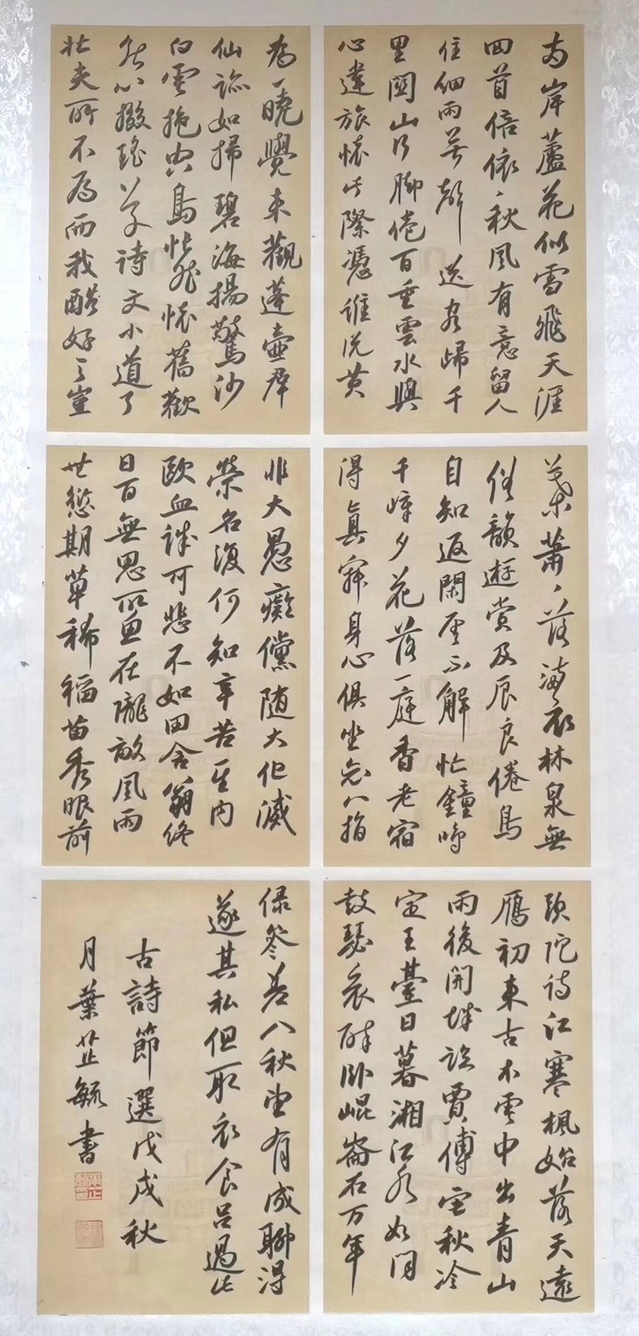 两岸蘆花似雪飛天涯
回首倍依々秋風有意留人
住細雨無聲送客歸千
里關山行脚倦百重雲水與
心違旅懷此際憑誰説黄
葉蕭々落滿衣林泉無
俗韻遊賞及辰良倦鳥
自知返閑雲不解忙鐘鳴
千嶂夕花落一庭香老宿
得真寂身心俱坐忘八指
頭陀詩江寒楓始落天遠
雁初來古木雲中出青山
雨後開城臨賈傅宅秋冷
定王臺日暮湘江水如聞
鼓瑟哀醉臥崐崙石万年
為一曉覺來觀蓬壺群
仙跡如掃碧海揚驚沙
白雲抱空島悵然懷舊歡
無心掇瑤草詩文小道了
壯夫所不為而我酷好之豈
非大愚癡儻随大化滅
榮名復何知辛苦至内
歐血誠可悲不如田舍翁終
日百無思所思在隴畝風雨
愆期草稀稻苗秀眼前
绿參差八秋望有成聊得
遂其私但取衣食足過此
古詩節選戊戌秋
月葉芷毓書